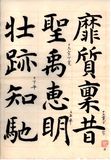 靡質稟昔
聖禹恵明
壮跡知馳